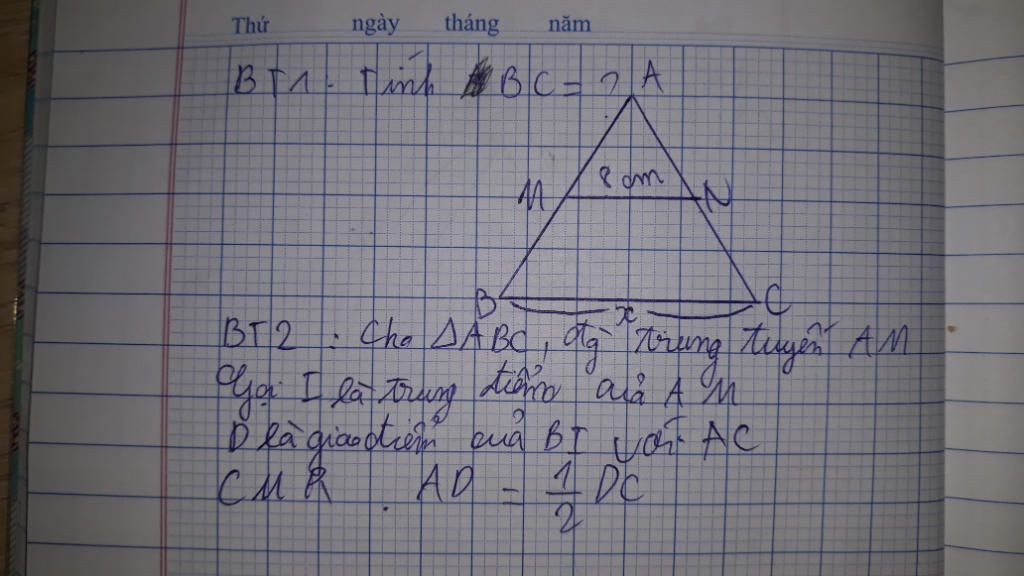 Thứ ngày tháng năm
BT1. Tính BC = ? A
8 cm
M N
B C
x
BT2 : Cho ΔABC, đg trung tuyến AM
Gọi I là trung điểm của AM
D là giao điểm của BI với AC
CMR AD = 1/2 DC